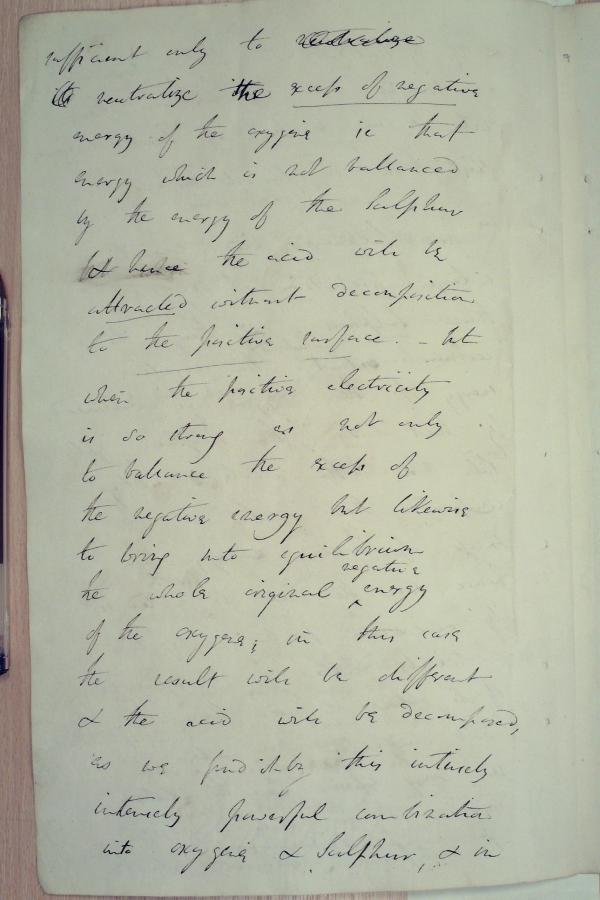 sufficient only to neutralize
neutralize the excess of negative
energy of the oxygene ie that
energy which is not ballanced
by the energy of the Sulphur
& hence the acid will be
attracted without decomposition
to the positive surface. - but
when the positive electricity
is so strong as not only
to ballance the excess of
the negative energy but likewise
to bring into equilibrium
the whole original negative energy
of the oxygene; in this case
the result will be different
& the acid will be decomposed,
as we find it by this intensely
intensely powerful combination
into oxygene & Sulphur, & in